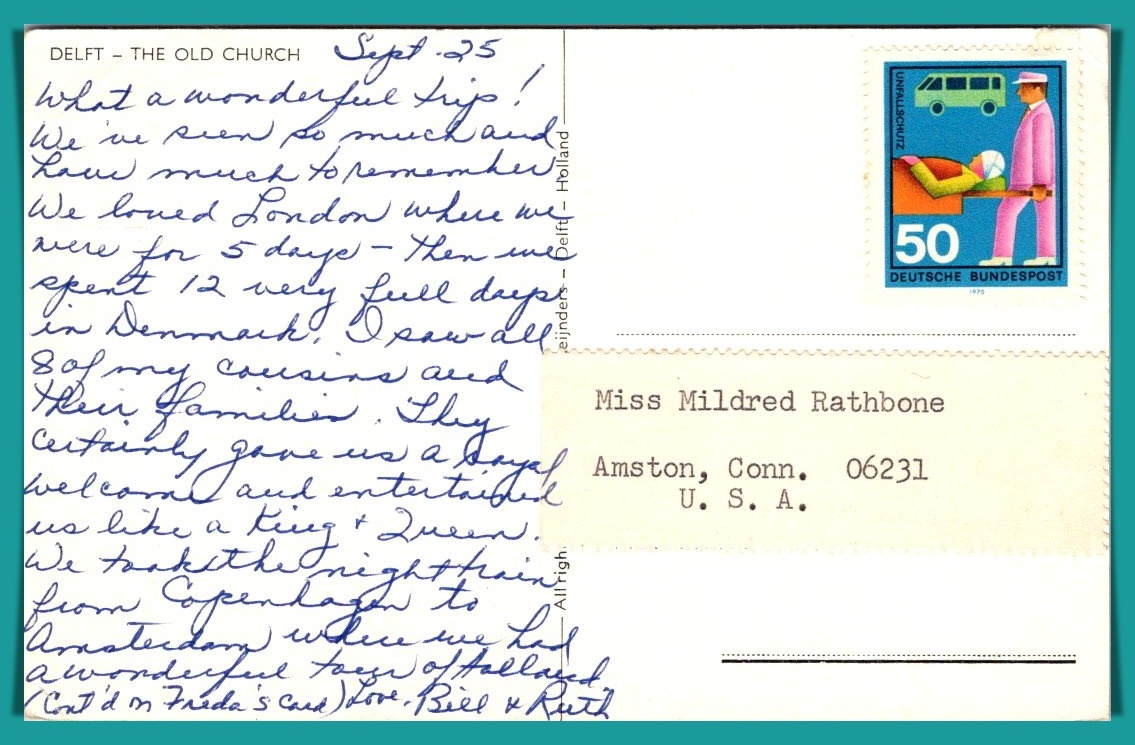 DELFT – THE OLD CHURCH
Sept. 25
What a wonderful trip!
We've seen so much and
have much to remember
We loved London where we
were for 5 days – then we
spent 12 very full days
in Denmark. I saw all
8 of my cousins and
their families. They
certainly gave us a royal
welcome and entertained
us like a King & Queen.
We took the night train
from Copenhagen to
Amsterdam where we had
a wonderful tour of Holland.
(Cont'd on Freda's card) Love, Bill & Ruth
All righ
eijnders – Delft – Holland
UNFALLSCHUTZ
50
DEUTSCHE BUNDESPOST
1970
Miss Mildred Rathbone
Amston, Conn. 06231
U. S. A.